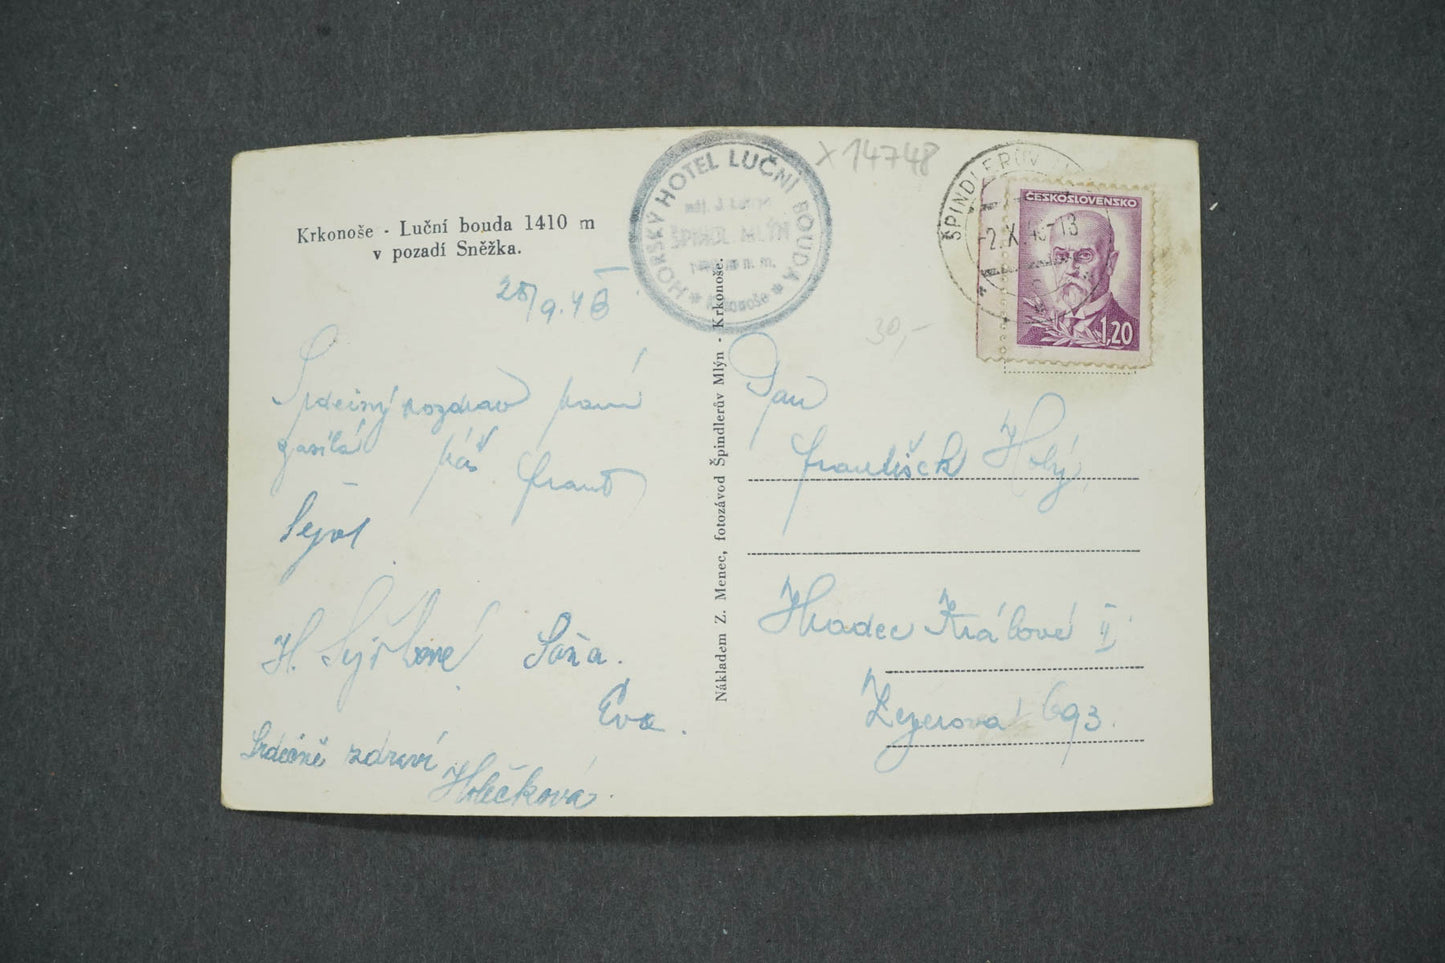 Krkonoše - Luční bouda 1410 m
v pozadí Sněžka.
HORSKÝ HOTEL LUČNÍ BOUDA
ŠPINDL. MLÝN
Krkonoše
X 14748
ŠPINDLERŮV
-2.X.
13
ČESKOSLOVENSKO
1,20
30,-
Srdečný pozdrav
zasílá
Soňa.
Eva.
Srdečně zdraví
Holečková.
Nákladem Z. Menec, fotozávod Špindlerův Mlýn - Krkonoše.
Pan
František Holý,
Hradec Králové II
Zeyerova 693.